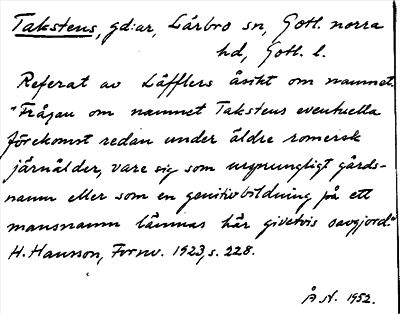 Taksteus, gd:ar, Lärbro sn, Gotl. norra
hd, Gotl. l.
Referat av Läfflers åsikt om namnet.
"Frågan om namnet Taksteus eventuella
förekomst redan under äldre romersk
järnålder, vare sig som ursprungligt gårds-
namn eller som en genitivbildning på ett
mansnamn lämnas här givetvis oavgjord."
H. Hansson, Fornv. 1923, s. 228.
Å N. 1952.